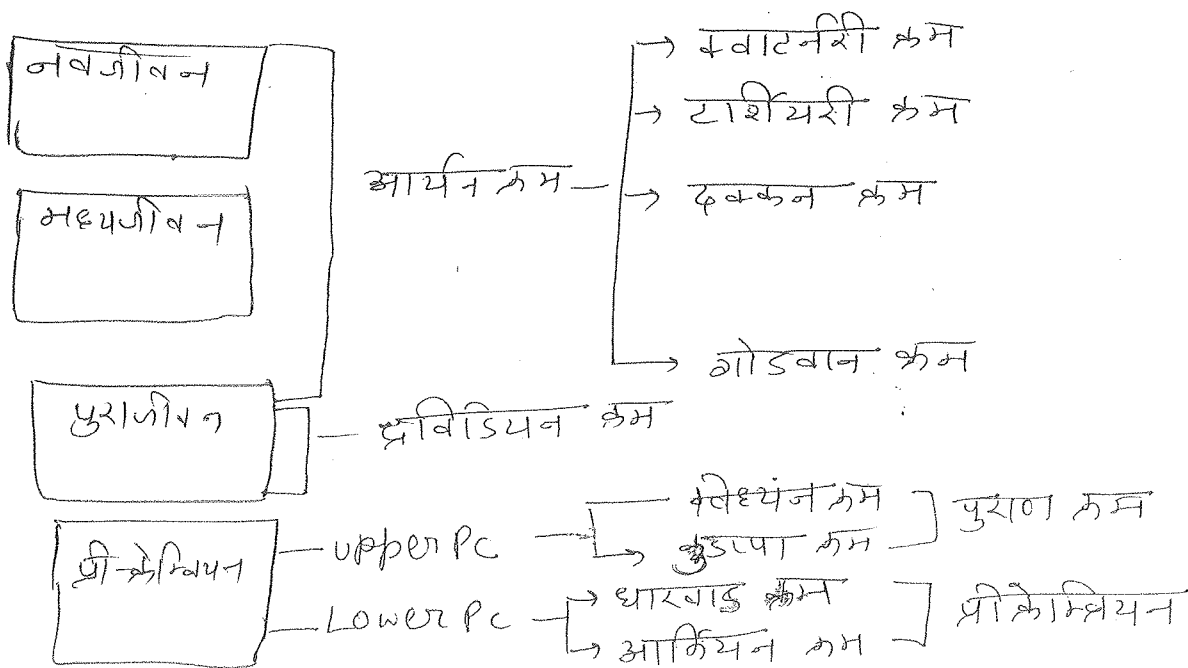 नवजीवन
मध्यजीवन
पुराजीवन
प्री-केम्ब्रियन
आर्यन क्रम
क्वाटर्नरी क्रम
टार्शियरी क्रम
दक्कन क्रम
गोडवान क्रम
द्रविडियन क्रम
upper Pc
विध्यंन क्रम
कुडप्पा क्रम
पुराण क्रम
Lower Pc
धारवाड़ क्रम
आर्कियन क्रम
प्रीकेम्ब्रियन